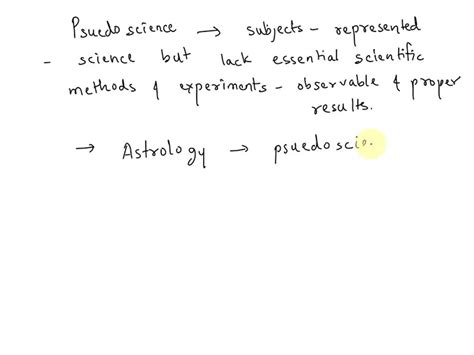 Psuedo science → subjects - represented
- science but lack essential scientific
methods & experiments - observable & proper
results.
→ Astrology → psuedo scie.